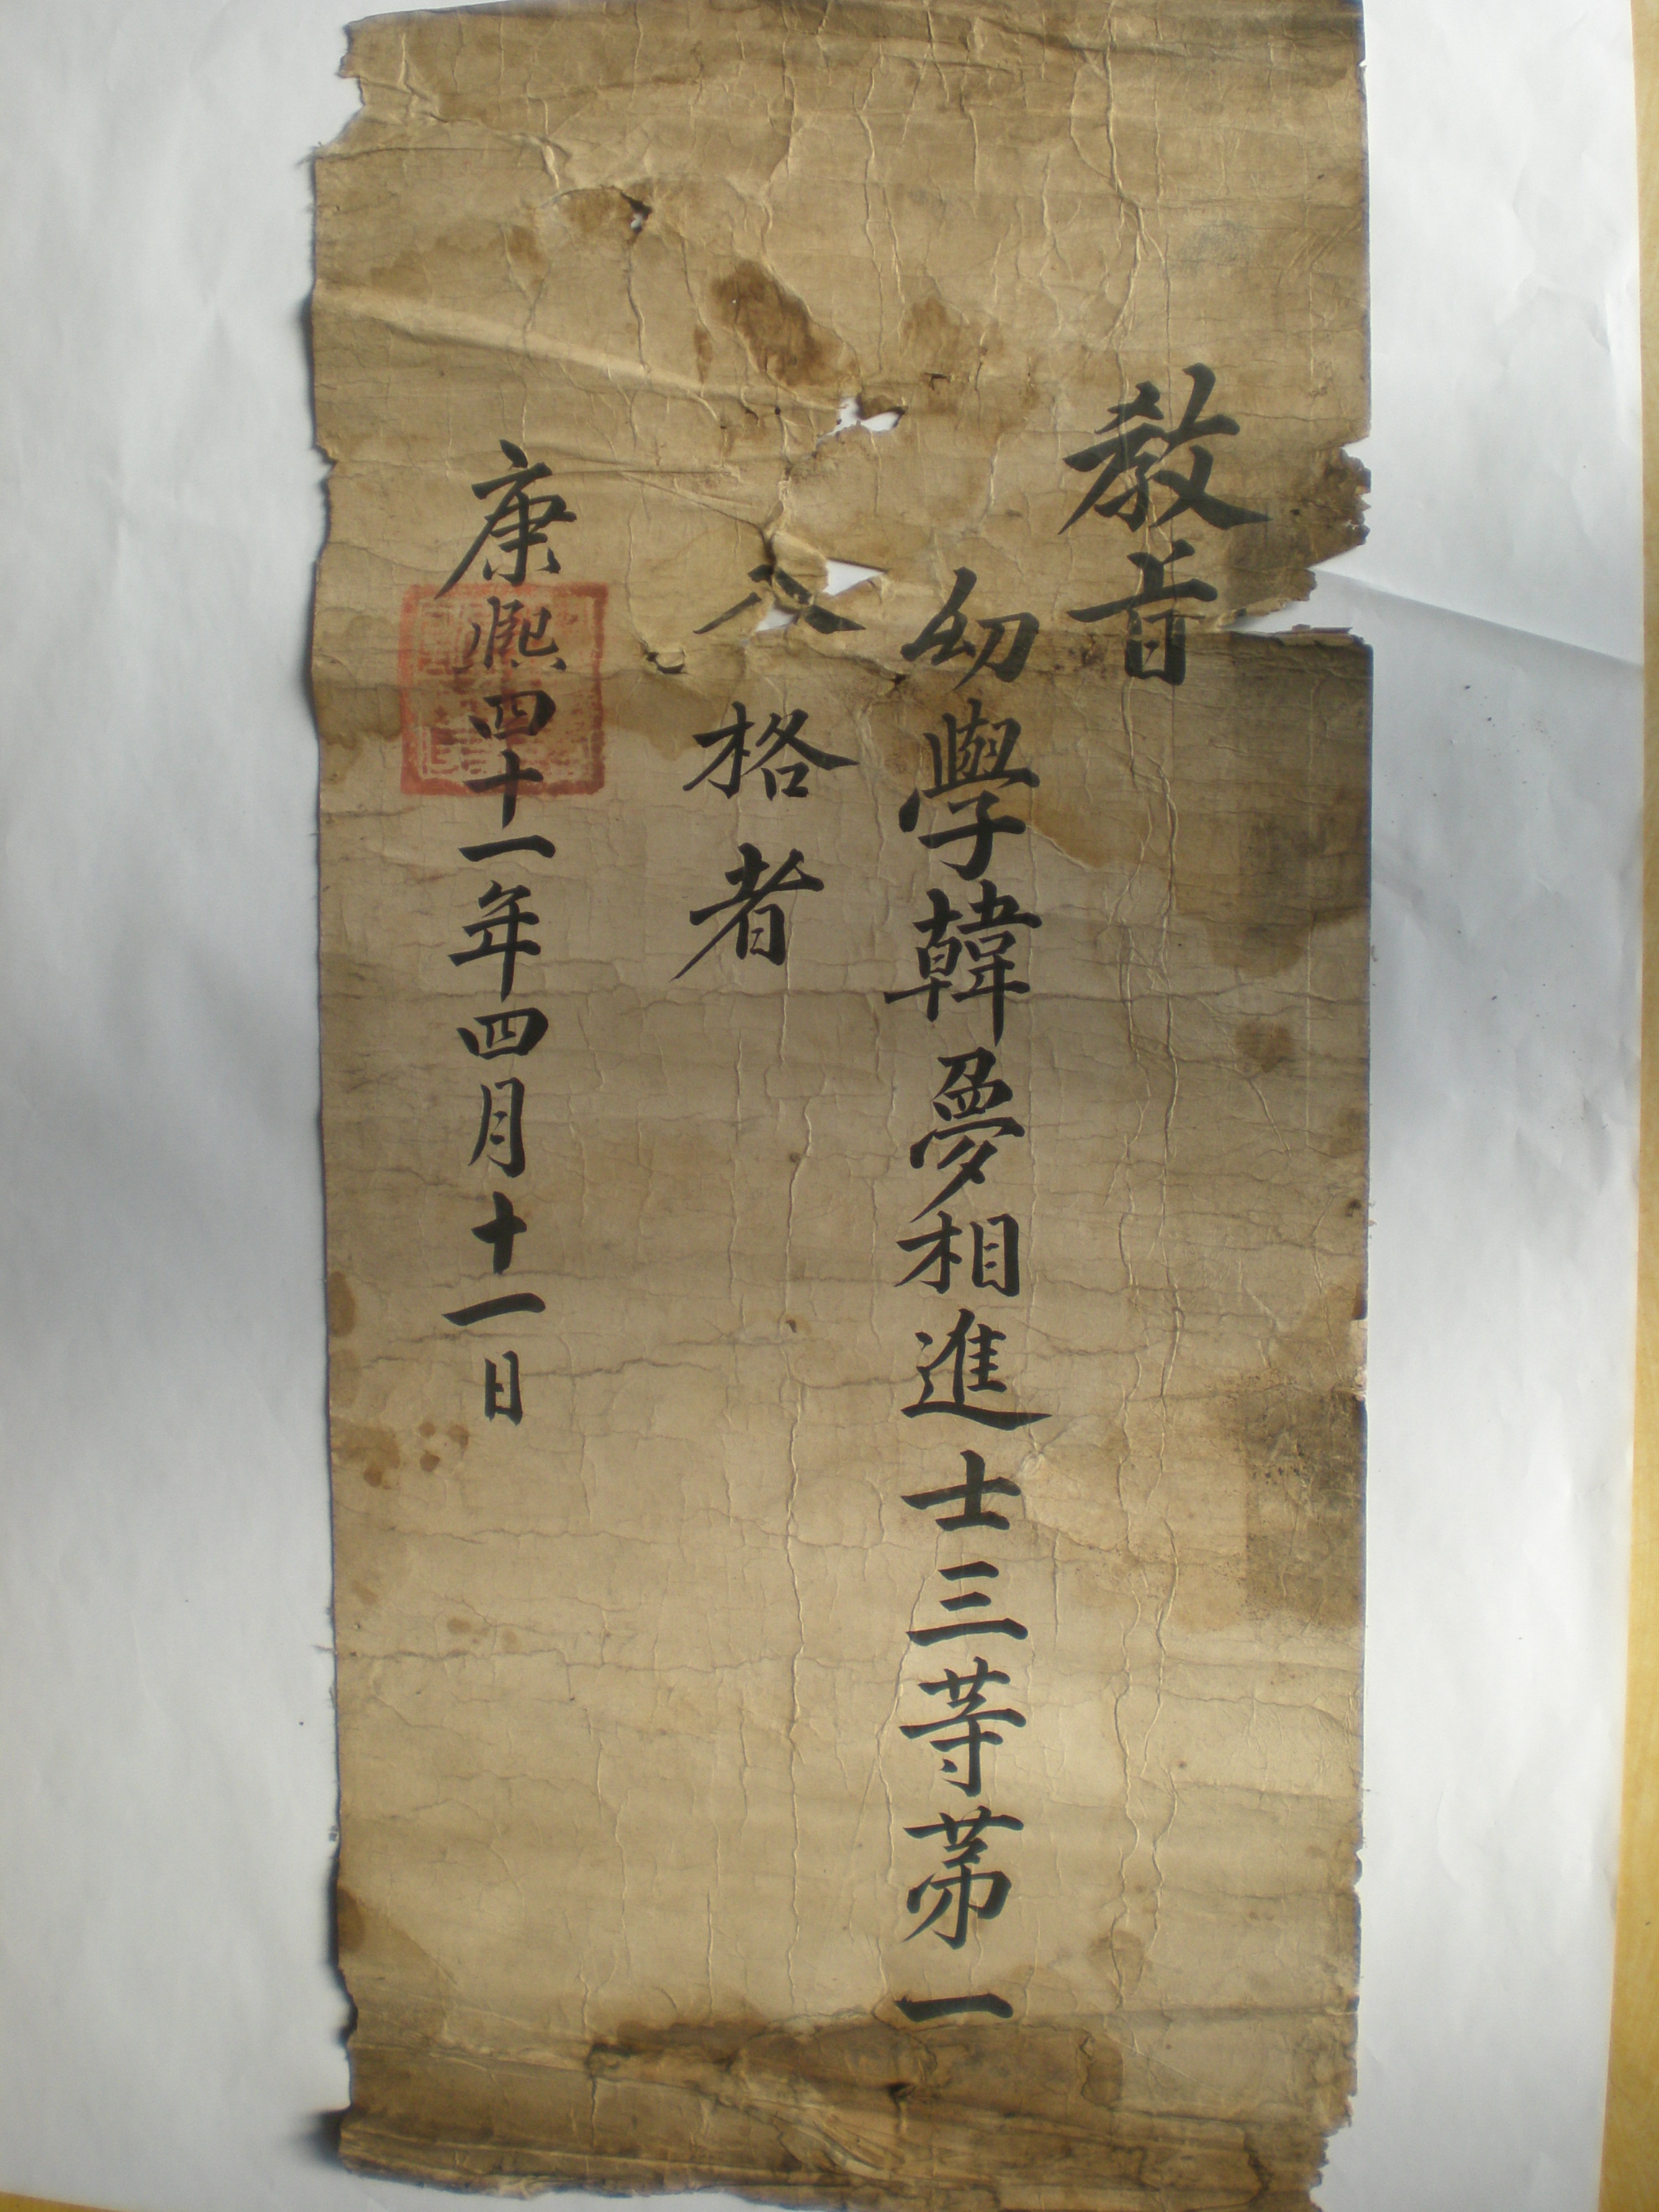 教旨
幼學韓夢相進士三等第一
入格者
康熙四十一年四月十一日